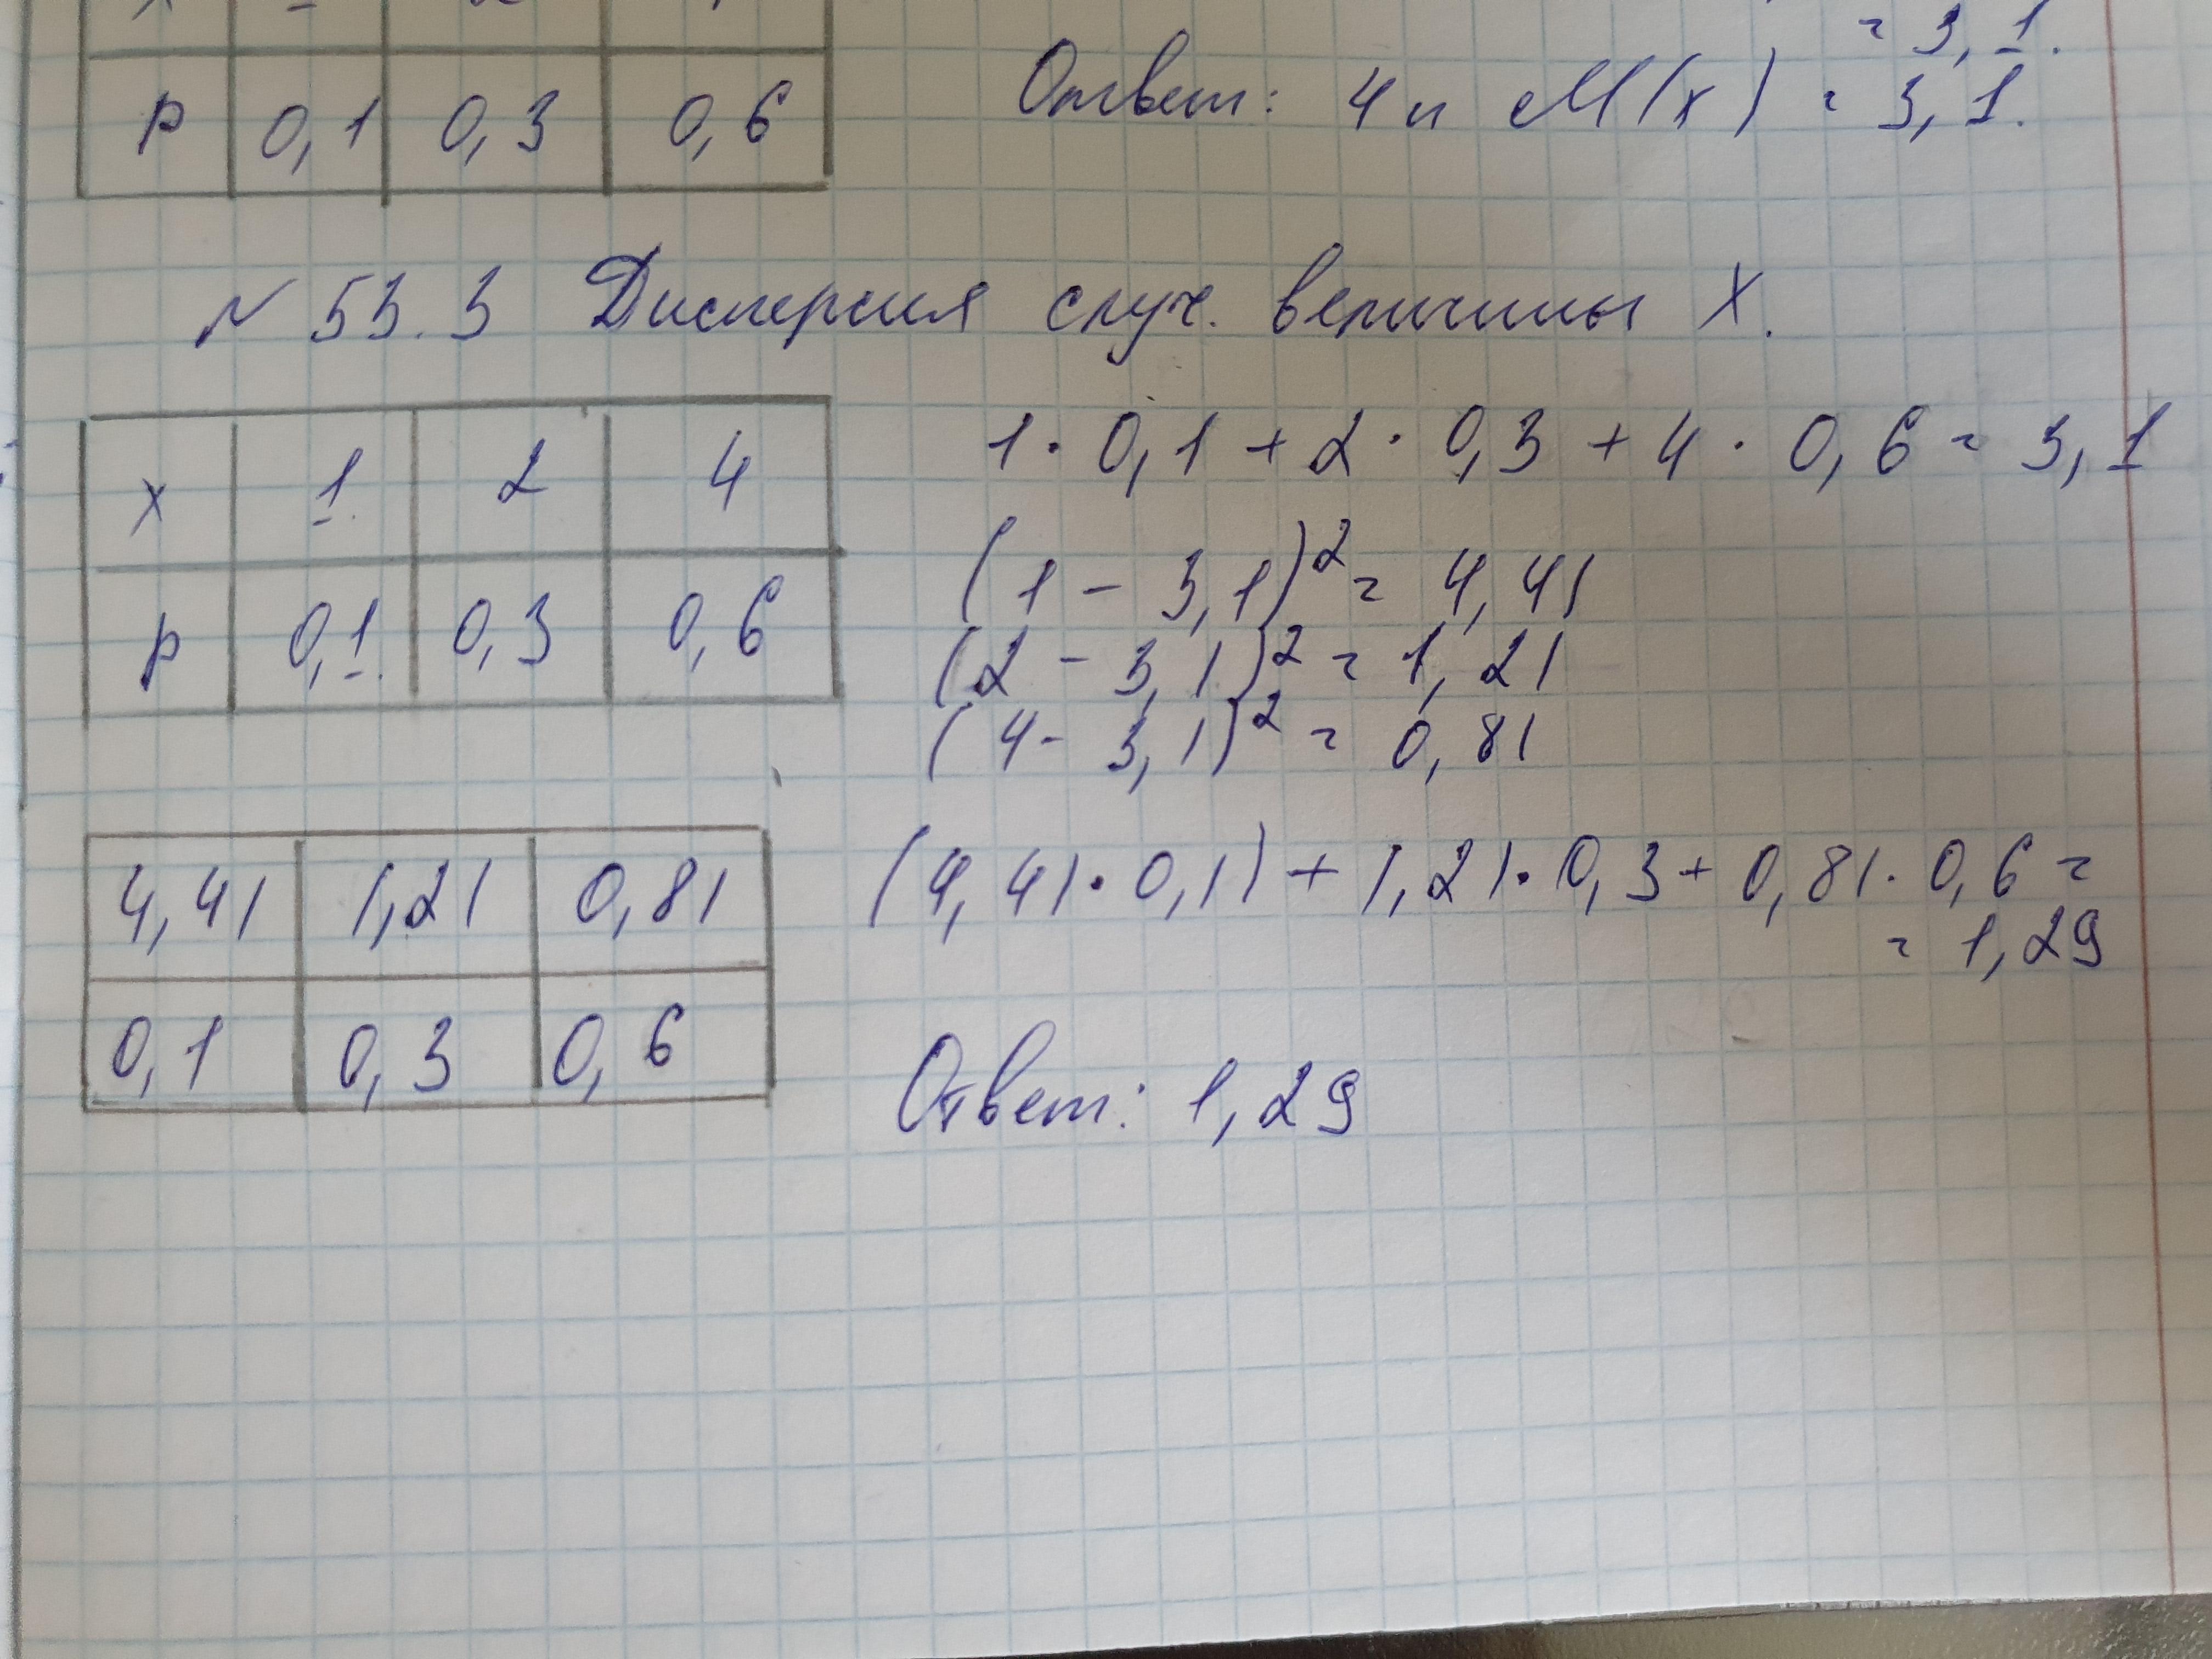 = 3,1.
p 0,1 0,3 0,6
Ответ: 4 и M(x) = 3,1.
N 53.3 Дисперсия случ. величины X.
x 1 2 4
p 0,1 0,3 0,6
1 · 0,1 + 2 · 0,3 + 4 · 0,6 = 3,1
(1 - 3,1)² = 4,41
(2 - 3,1)² = 1,21
(4 - 3,1)² = 0,81
4,41 1,21 0,81
0,1 0,3 0,6
(4,41 · 0,1) + 1,21 · 0,3 + 0,81 · 0,6 =
= 1,29
Ответ: 1,29